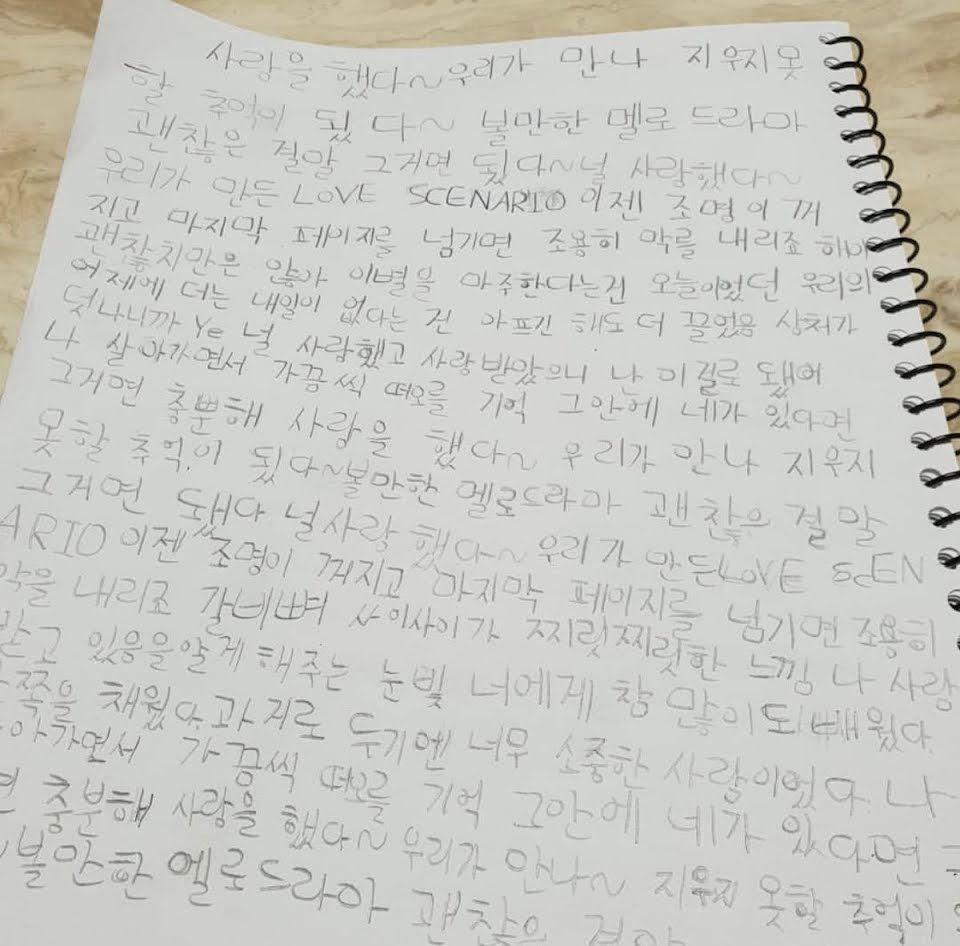 사랑을 했다~우리가 만나 지우지못
할 추억이 됬다~ 볼만한 멜로 드라마
괜찮은 결말 그거면 됬다~널 사랑했다~
우리가 만든 LOVE SCENARIO 이젠 조명이 꺼
지고 마지막 페이지를 넘기면 조용히 막를 내리죠
괜찮치만은 안하아 이별을 마주한다는건 오늘이었던 우리의
어제에 더는 내일이 없다는 건 아프긴 해도 더 끌었음 상처가
덧나니까 Ye 널 사랑했고 사랑받았으니 난 이걸로 됐어
나 살아가면서 가끔씩 떠오를 기억 그안에 네가 있다면
그거면 충뿐해 사랑을 했다~ 우리가 만나 지우지
못할 추억이 됬다~볼만한 멜로드라마 괜찮은 결말
그거면 됐다 널사랑 했다~ 우리가 만든LOVE SCEN
ARIO 이젠 조명이 꺼지고 마지막 페이지를 넘기면 조용히
막을 내리죠 갈비뼈 사이사이가 찌릿찌릿한 느낌 나 사랑
받고 있음을알게 해주는 눈빛 너에게 참 많이도 배웠다
쪽을 채웠다. 과거로 두기엔 너무 소중한 사람이었다. 나
아가면서 가끔씩 떠오를 기억 그안에 네가 있다면
충분해 사랑을 했다~ 우리가 만나~ 지우지 못할 추억이
볼만한 멜로드라마 괜찮은